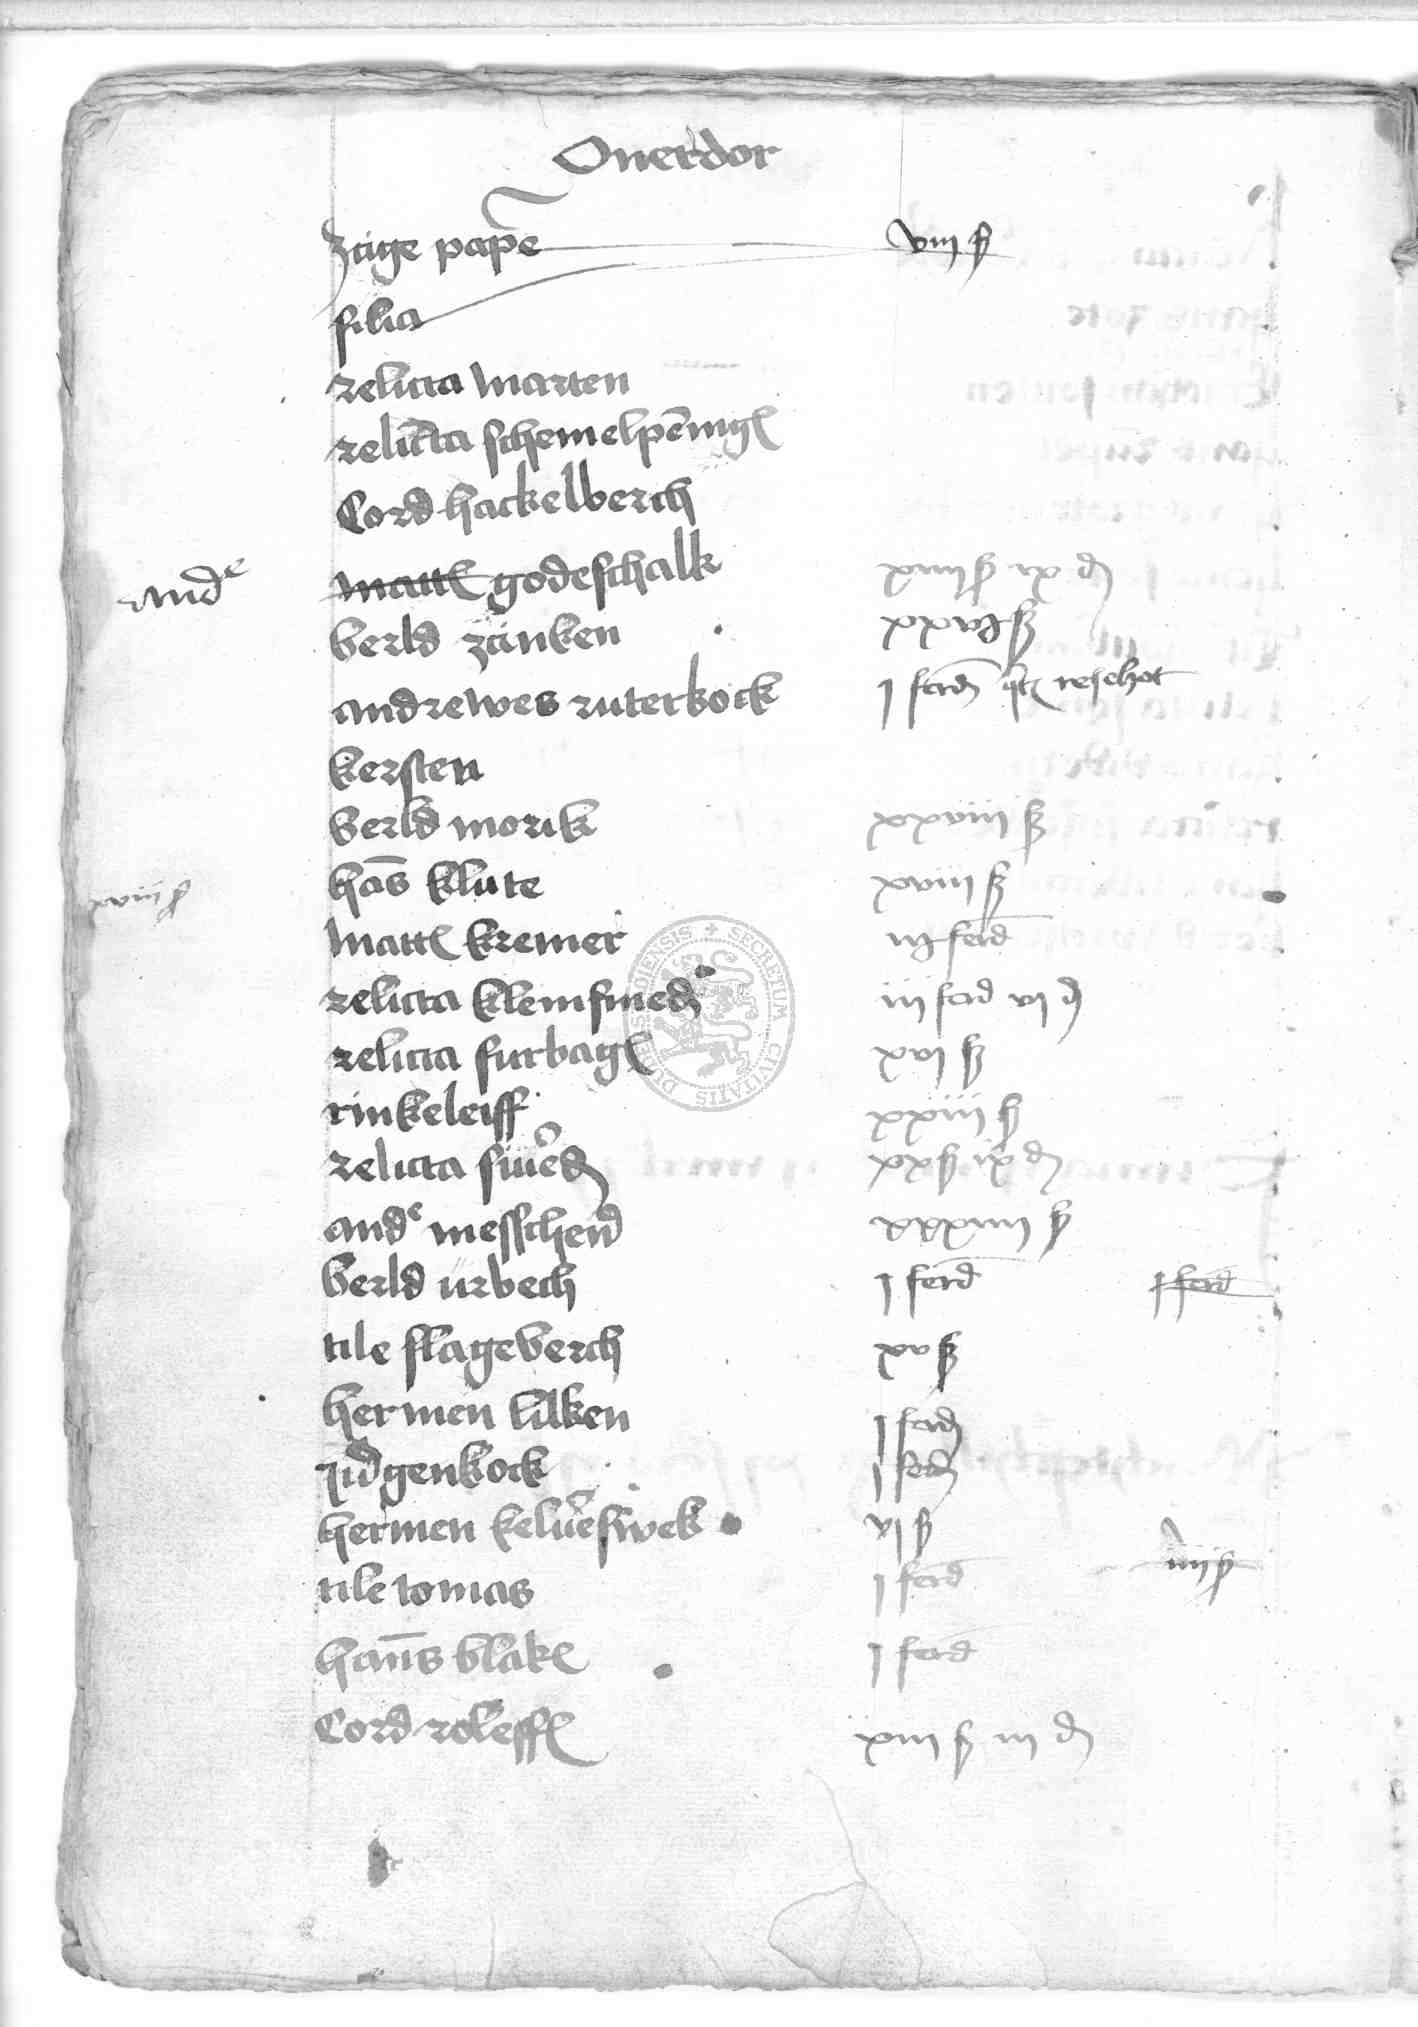 Ouerdor
zcige pape viii ß
filia
relicta marten
relicta schemelpennigs
Cord hackelberch
ande matts godeschalk xiiii ß ix d
berld zcinken xxvi ß
andrewes ruterkock j ferd reschot
kersten
berld morik xxviiii ß
xviii ß hans klute xviii ß
matts kremer ferd
relicta klemsmedes iii ferd vi d
relicta furbags xvi ß
rinkeleiff xxiii ß
relicta siuerd xx ß ix d
ande messcherd xxxiiii ß
berld urbech j ferd j ferd
tile slageberch xv ß
hermen lilken j ferd
judgenkock j ferd
hermen keluerswek vi ß
tile tomas j ferd iiii ß
hanns blake j ferd
Cord roleffs xiii ß iii d
SECRETUM CIVITATIS DUDERSTADIENSIS